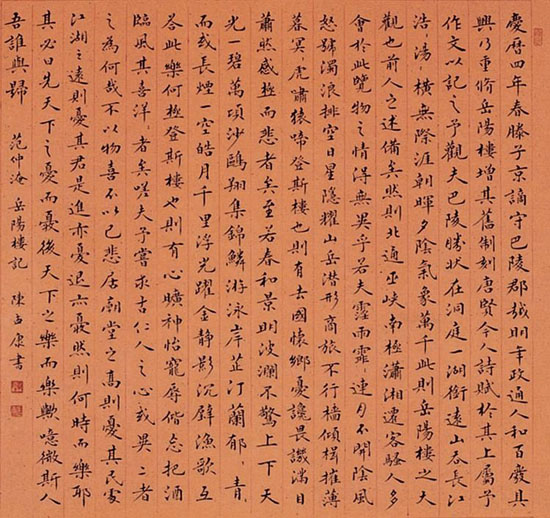 慶曆四年春滕子京謫守巴陵郡越明年政通人和百廢具
興乃重脩岳陽樓增其舊制刻唐賢今人詩賦於其上屬予
作文以記之予觀夫巴陵勝狀在洞庭一湖銜遠山吞長江
浩〻湯〻橫無際涯朝暉夕陰氣象萬千此則岳陽樓之大
觀也前人之述備矣然則北通巫峽南極瀟湘遷客騷人多
會於此覽物之情得無異乎若夫霪雨霏〻連月不開陰風
怒號濁浪排空日星隱耀山岳潛形商旅不行檣傾楫摧薄
暮冥〻虎嘯猿啼登斯樓也則有去國懷鄉憂讒畏譏滿目
蕭然感極而悲者矣至若春和景明波瀾不驚上下天
光一碧萬頃沙鷗翔集錦鱗游泳岸芷汀蘭郁〻青〻
而或長煙一空皓月千里浮光躍金靜影沉璧漁歌互
答此樂何極登斯樓也則有心曠神怡寵辱偕忘把酒
臨風其喜洋〻者矣嗟夫予嘗求古仁人之心或異二者
之為何哉不以物喜不以己悲居廟堂之高則憂其民處
江湖之遠則憂其君是進亦憂退亦憂然則何時而樂耶
其必曰先天下之憂而憂後天下之樂而樂歟噫微斯人
吾誰與歸 范仲淹 岳陽樓記 陳 康書